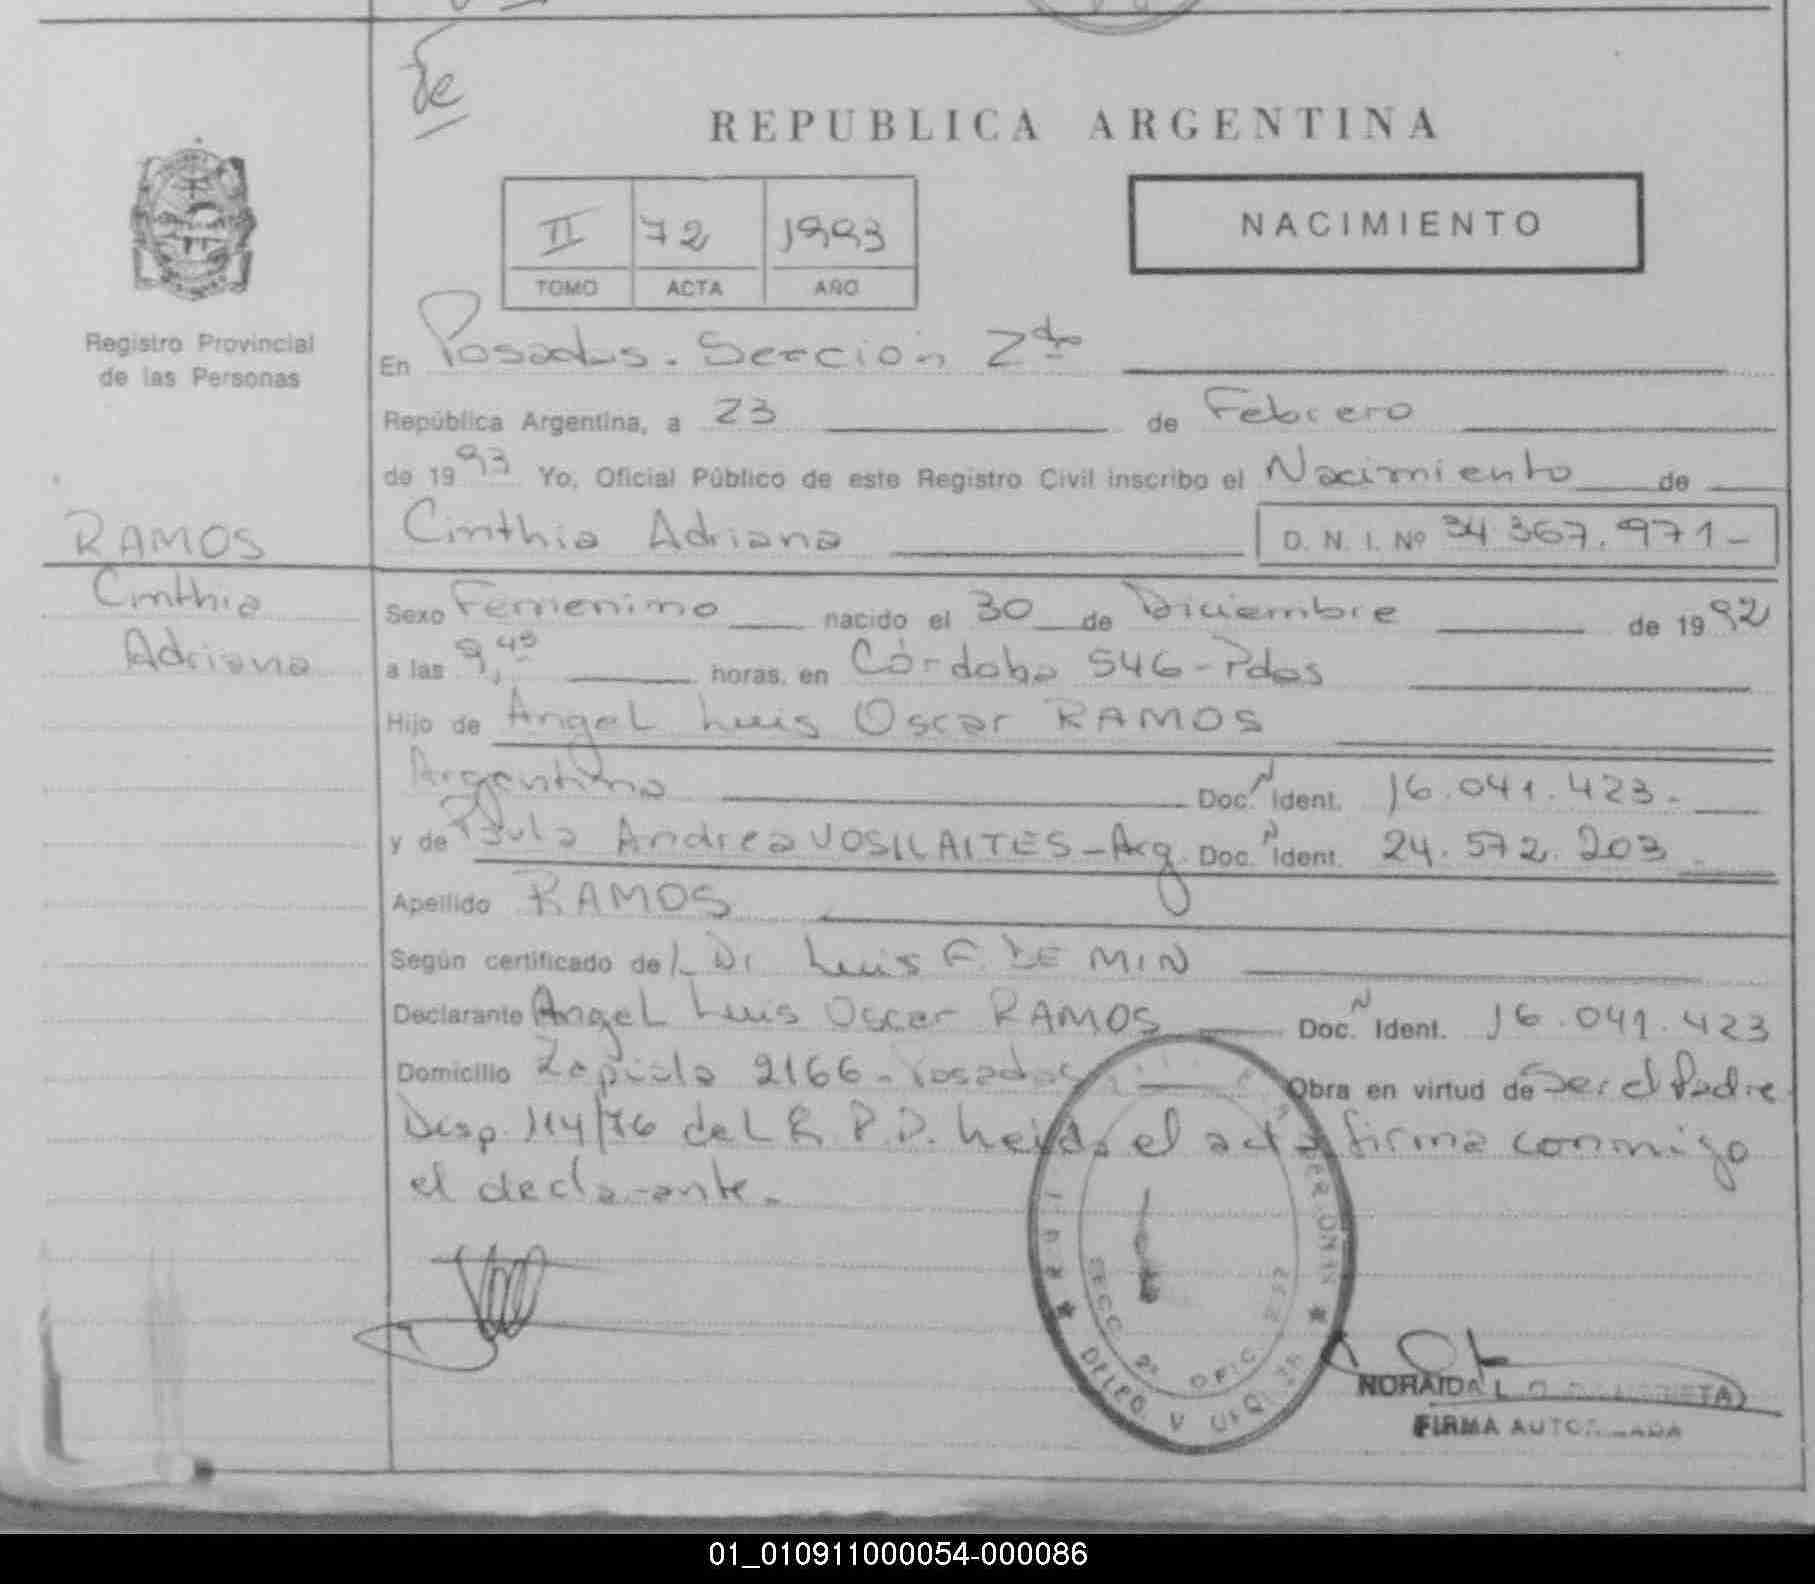 de
REPUBLICA ARGENTINA
II 72 1993
TOMO ACTA AÑO
NACIMIENTO
Registro Provincial
de las Personas
En Posadas. Sección 2da
República Argentina, a 23 de Febrero
de 1993 Yo, Oficial Público de este Registro Civil inscribo el Nacimiento de
RAMOS
Cinthia Adriana D. N. I. Nº 34.367.971-
Cinthia
Adriana
Sexo Femenino nacido el 30 de Diciembre de 1992
a las 9,45 horas. en Córdoba 546-Pdas
Hijo de Angel Luis Oscar RAMOS
Argentino Doc. Ident. 16.041.423.-
y de Paula Andrea VOSILAITES-Arg. Doc. Ident. 24.572.203
Apellido RAMOS
Según certificado del Dr Luis F. DE MIN
Declarante Angel Luis Oscar RAMOS Doc. Ident. 16.041.423
Domicilio Zapiola 2166-Posadas Obra en virtud de Ser el Padre
Disp. 114/76 del R. P. P. Leida el acta firma conmigo
el declarante.
SECC. 2ª OFIC.
NORAIDA L.
FIRMA AUTORIZADA
01_010911000054-000086